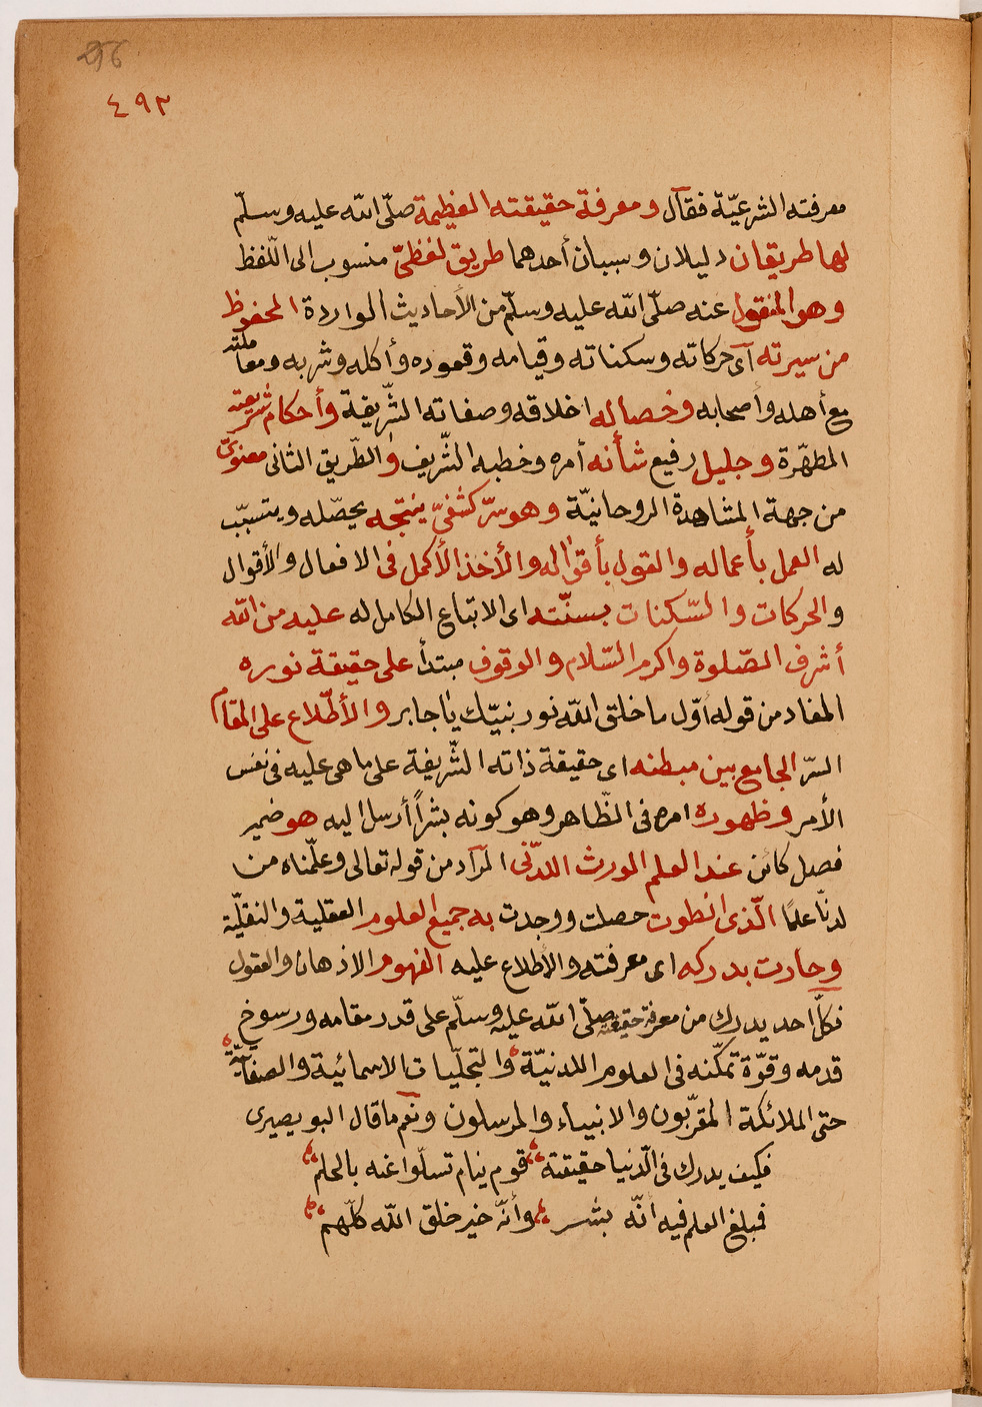 256
٤٩٣
معرفته الشرعيّة فقال ومعرفة حقيقته العظيمة صلّى الله عليه وسلّم
لها طريقان دليلان وسببان أحدهما طريق لفظيّ منسوب الى اللّفظ
وهو المنقول عنه صلّى الله عليه وسلّم من الأحاديث الواردة المحفوظ
من سيرته أى حركاته وسكناته وقيامه وقعوده وأكله وشربه ومعاملته
مع أهله وأصحابه وخصاله اخلاقه وصفاته الشّريفة وأحكام شريعته
المطهّرة وجليل رفيع شأنه أمره وخطبه الشّريف والطّريق الثانى معنويّ
من جهة المشاهدة الروحانيّة وهو سرّ كشفيّ ينتجه يحصّله ويتسبّب
له العمل بأعماله والقول بأقواله والأخذ الأكمل فى الافعال والأقوال
والحركات والسّكنات بسنّته اى الاتباع الكامل له عليه من الله
أشرف الصّلوة واكرم السّلام والوقوف مبتدأ على حقيقة نوره
المفاد من قوله أوّل ما خلق الله نور نبيّك يا جابر والأطّلاع على المقام
السرّ الجامع بين مبطنه اى حقيقة ذاته الشّريفة على ما هى عليه فى نفس
الأمر وظهوره امره فى الظّاهر وهو كونه بشراً أرسل اليه هو ضمير
فصل كائن عند العلم المورث اللدنّى المرآد من قوله تعالى وعلّمناه من
لدنّا علمًا الّذى انطوت حصلت ووجدت به جميع العلوم العقلية والنقليّة
وحارت بدركه اى معرفته والأطلاع عليه الفهوم الاذهان والعقول
فكلّ احد يدرك من معرفة حقيقته صلّى الله عليه وسلّم على قدر مقامه ورسوخ
قدمه وقوّة تمكّنه فى العلوم اللدنيّة والتجلّيات الاسمائية والصفاتيّة
حتى الملائكة المقرّبون والانبياء والمرسلون ونعم ما قال البوبصيرى
فكيف يدرك فى الّدنيا حقيقته قوم ينام تسلّوا عنه بالحلم
فمبلغ العلم فيه انّه بشر وأنّه خير خلق الله كلّهم